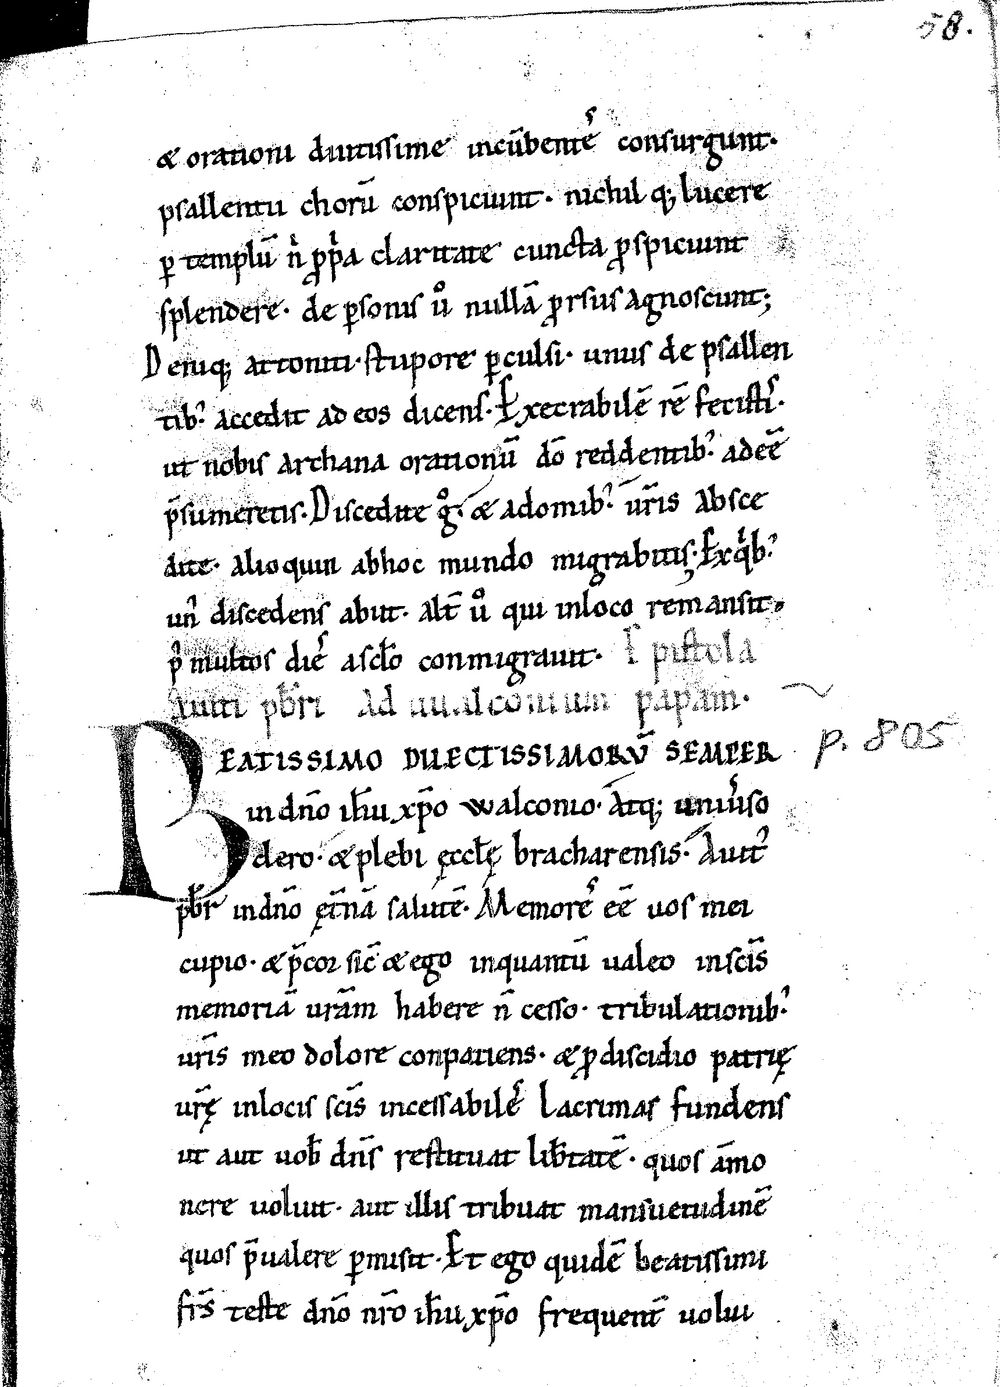 58.
& orationi diutissime incūbent᷒ consurgunt.
psallentiū chorū conspiciunt. nichil q; lucere
ꝑ templū n̄ ꝓp̄a claritate cuncta ꝑspiciunt
splendere. de ꝑsonis ů nullā ꝓrsus agnoscunt;
Deniq; attoniti. stupore ꝑculsi. unus de psallen
tib; accedit ad eos dicens. Execrabilē rē fecistis.
ut nobis archana orationū dō reddentib; adeē
p̄sumeretis. Discedite g̊. & adomib; ūr̄is absce
dite. alioquin abhoc mundo migrabitis. Exq̇b;
un᷒ discedens abiit. alt̄ ů qui inloco remansit.
p᷒ multos dies ascło conmigrauit. Epistola
Auiti pb̄ri ad uualconium papam.
p. 805
BEATISSIMO DILECTISSIMORŪ SEMPER
in dn̄o ih̄u xp̄o walconio. Atq; uniůso
clero. & plebi ęccłę bracharensis. Auit᷒
pb̄r indn̄o ęt̄nā salutē. Memores eē uos mei
cupio. & p̄cor sic̄ & ego inquantū ualeo inscīs
memoriā urām habere n̄ cesso. tribulationib;
ur̄is meo dolore conpatiens. & ꝓ discidio patrię
ur̄ę inlocis scīs incessabiles lacrimas fundens
ut aut uob̄ dn̄s restituat lib̄tatē. quos am̄o
nere uoluit. aut illis tribuat mansuetudinē
quos p̄ualere ꝑmisit. Et ego quidē beatissimi
frs̄ teste dn̄o nr̄o ih̄u xp̄o frequent̄ uolui